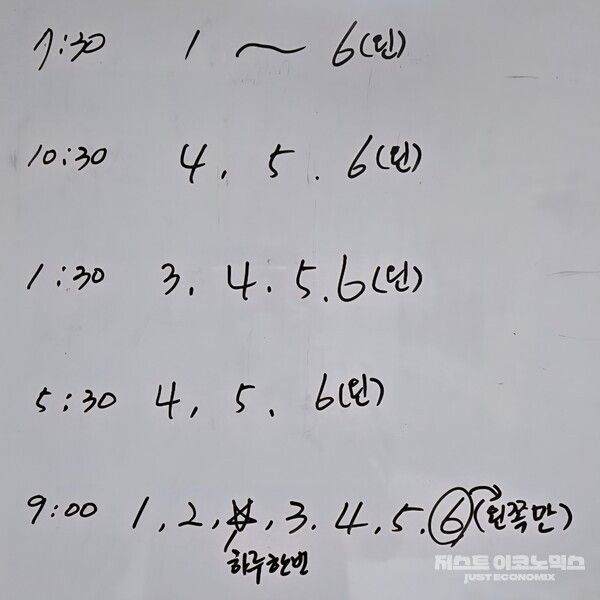 7:30 1 ~ 6(왼)
10:30 4. 5. 6(왼)
1:30 3. 4. 5. 6(왼)
5:30 4, 5. 6(왼)
9:00 1, 2, ☆, 3. 4, 5. 6 (왼쪽만)
하루한번
저스트 이코노믹스
JUST ECONOMIX